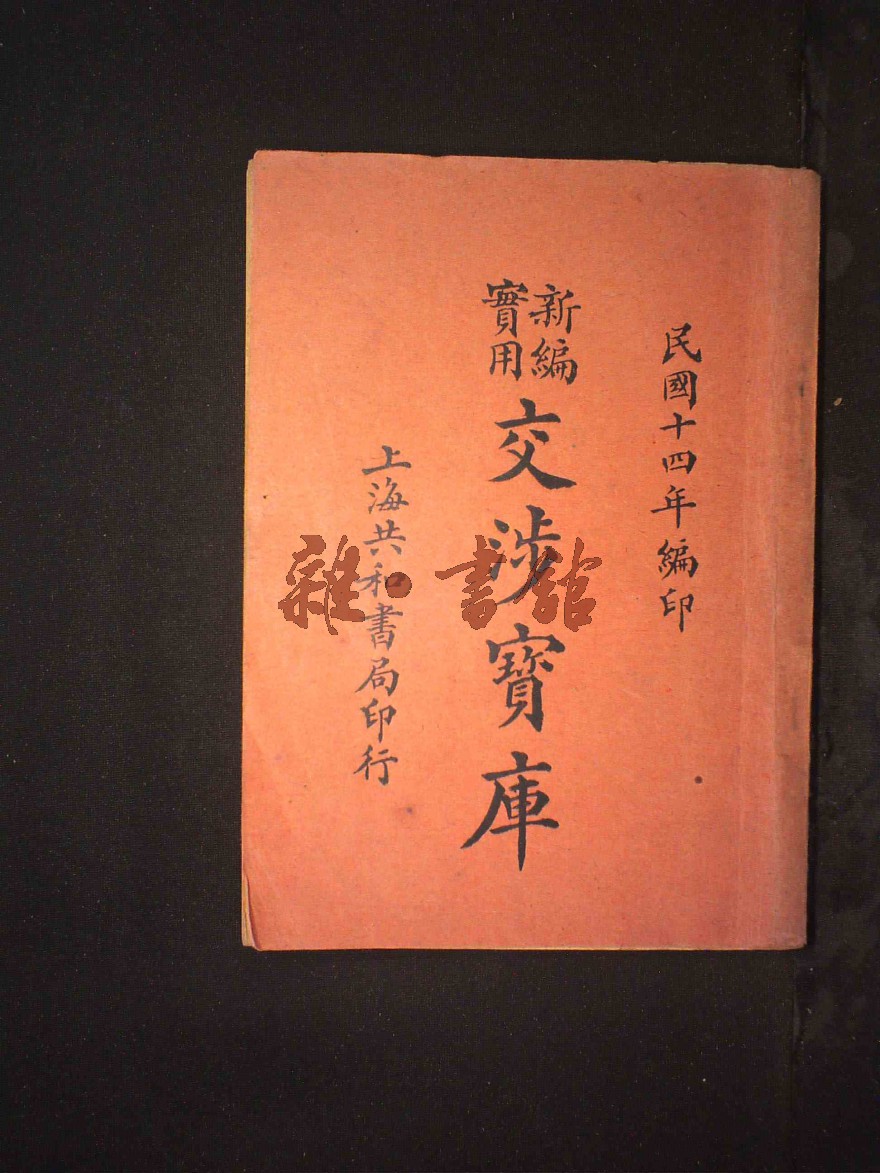 民國十四年編印
新編
實用
交涉寶庫
上海共和書局印行
雜·書館